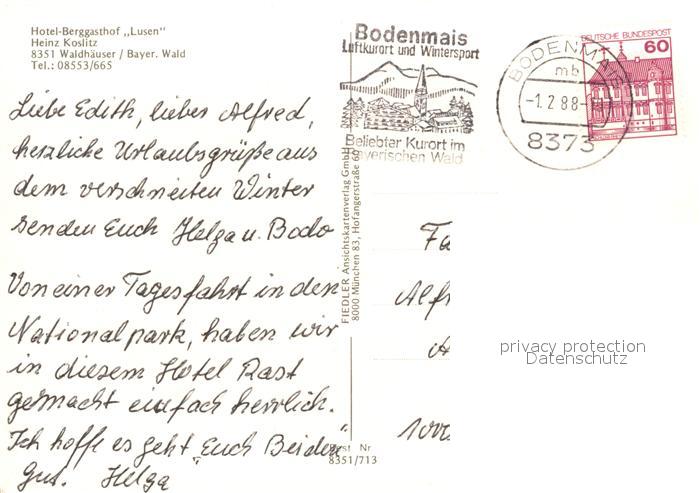 Hotel-Berggasthof „Lusen"
Heinz Koslitz
8351 Waldhäuser / Bayer. Wald
Tel.: 08553/665
Bodenmais
Luftkurort und Wintersport
Beliebter Kurort im
Bayerischen Wald
BODENMAIS
mb
-1.2.88-
8373
DEUTSCHE BUNDESPOST
60
Liebe Edith, lieber Alfred,
herzliche Urlaubsgrüße aus
dem verschneiten Winter
senden Euch Helga u. Bodo
Von einer Tagesfahrt in den
Nationalpark, haben wir
in diesem Hotel Rast
gemacht einfach herrlich.
Ich hoffe es geht Euch Beiden
gut. Helga
FIEDLER Ansichtskartenverlag GmbH
8000 München 83, Hofangerstraße 69
Best Nr
8351/713
Fa
Alfr
A
1000
privacy protection
Datenschutz